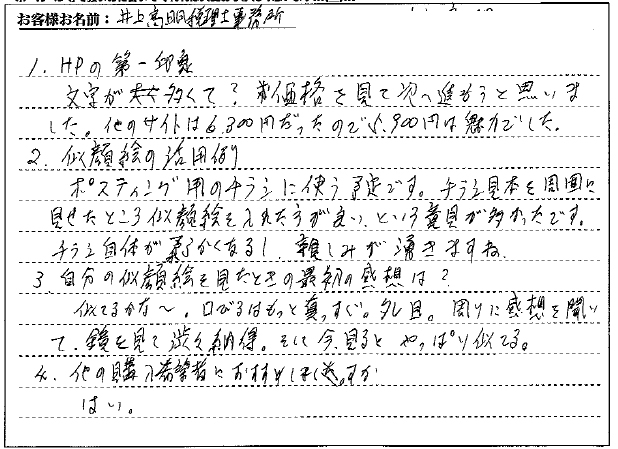 お客様お名前：井上高明税理士事務所
1. HPの第一印象
文字が多くて？ 価格を見て次へ進もうと思いま
した。他のサイトは6,300円だったので5,900円は魅力でした。
2. 似顔絵の活用例
ポスティング用のチラシに使う予定です。チラシ見本を周囲に
見せたところ似顔絵を入れた方が良い、という意見が多かったです。
チラシ自体が柔らかくなるし、親しみが湧きますね。
3 自分の似顔絵を見たときの最初の感想は？
似てるかな〜。口びるはもっと真っすぐ。タレ目。周りに感想を聞い
て、鏡を見て渋々納得。そして今見るとやっぱり似てる。
4. 他の購入希望者におすすめしますか
はい。